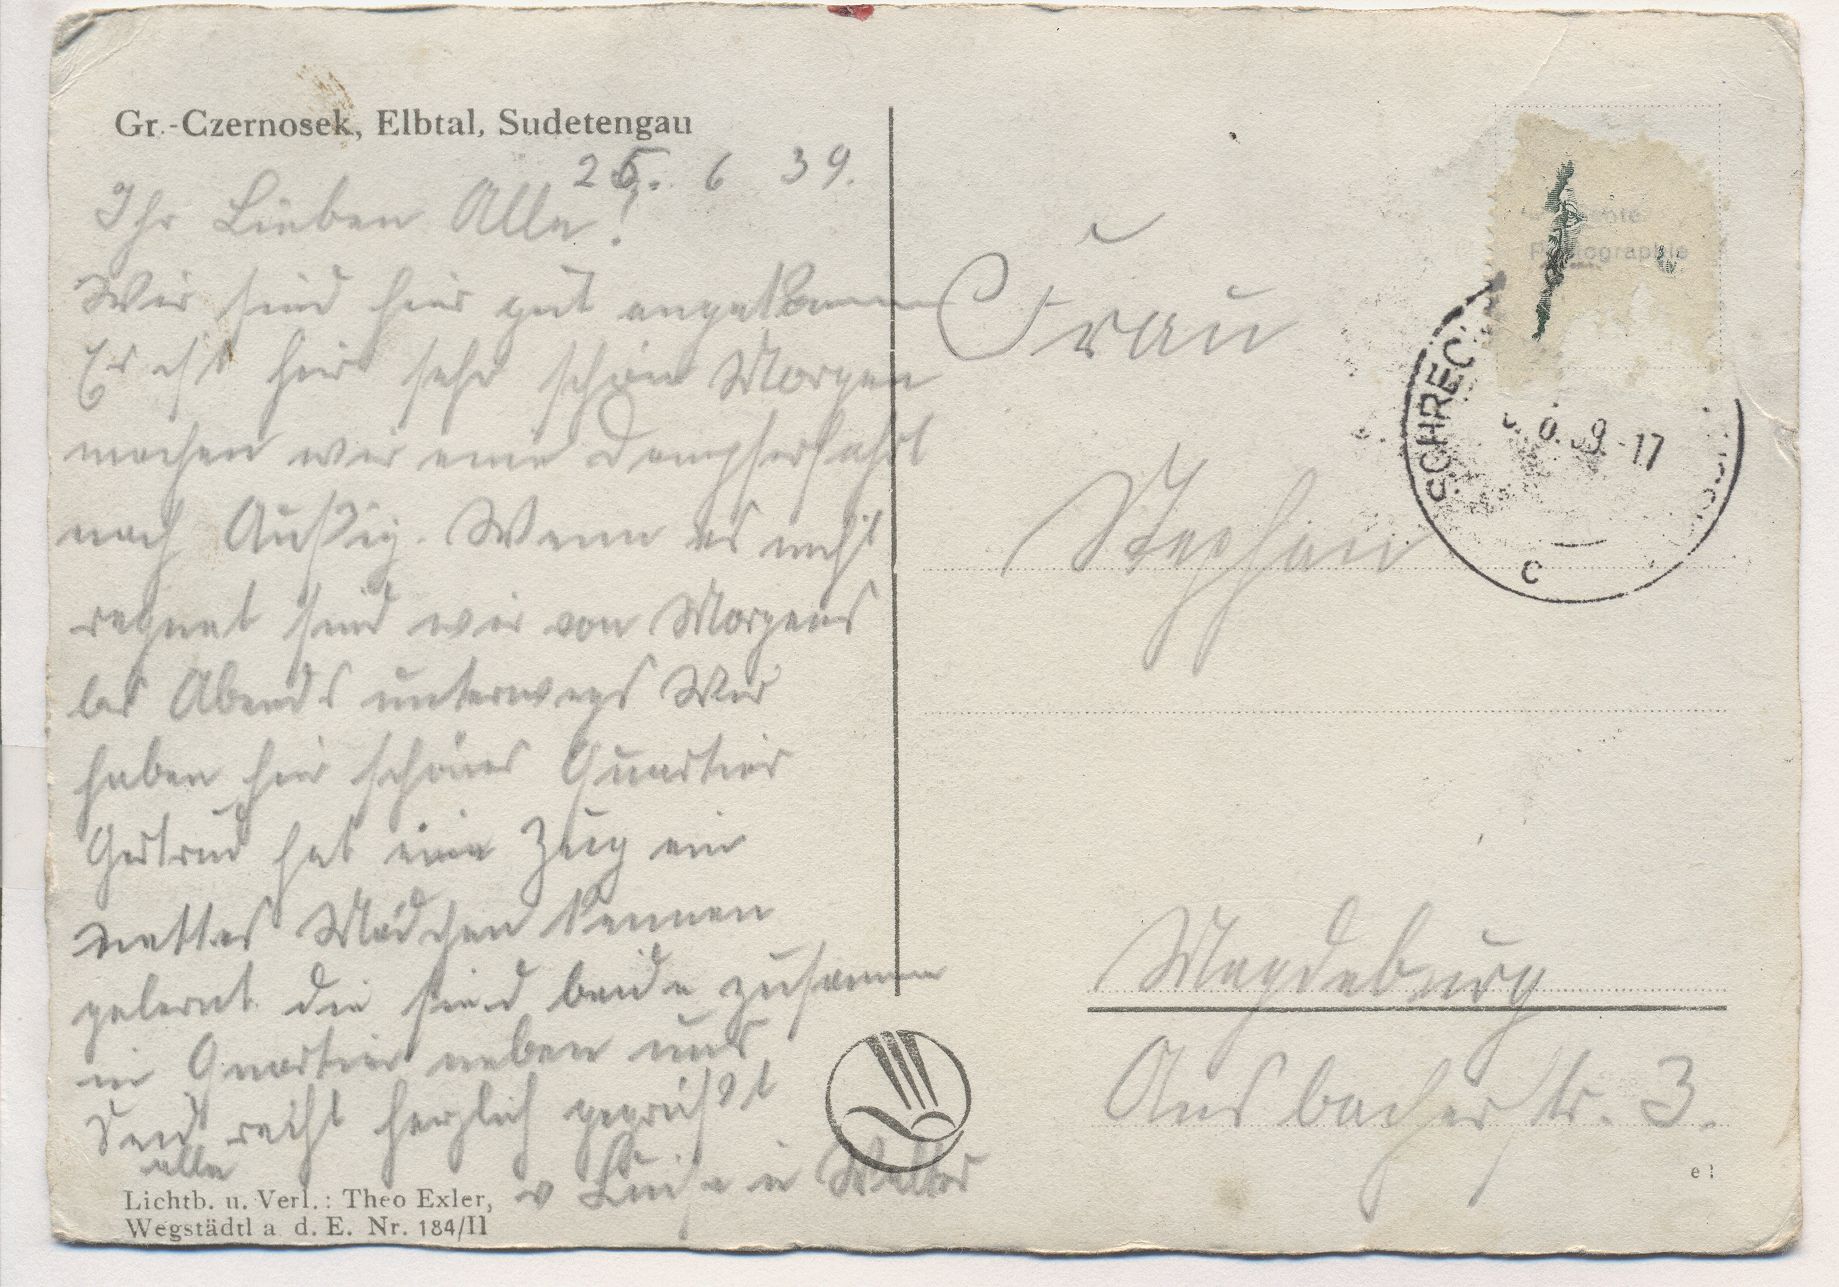 Gr.-Czernosek, Elbtal, Sudetengau
25. 6 39.
Ihr Lieben Alle!
Wir sind hier gut angekommen
Es ist hier sehr schön Morgen
machen wir eine Dampferfahrt
nach Außig. Wenn es nicht
regnet sind wir von Morgens
bis Abends unterwegs Wir
haben hier schönes Quartier
Gertrud hat eine Zug ein
nettes Mädchen kennen
gelernt die sind beide zusammen
in Quartier neben uns
Seid recht herzlich gegrüßt
alle
v Luise u Walter
Lichtb. u. Verl.: Theo Exler,
Wegstädtl a. d. E. Nr. 184/II
Frau
Stephan
Magdeburg
Ansbacherstr. 3.
SCHREC
6. 39-17
c